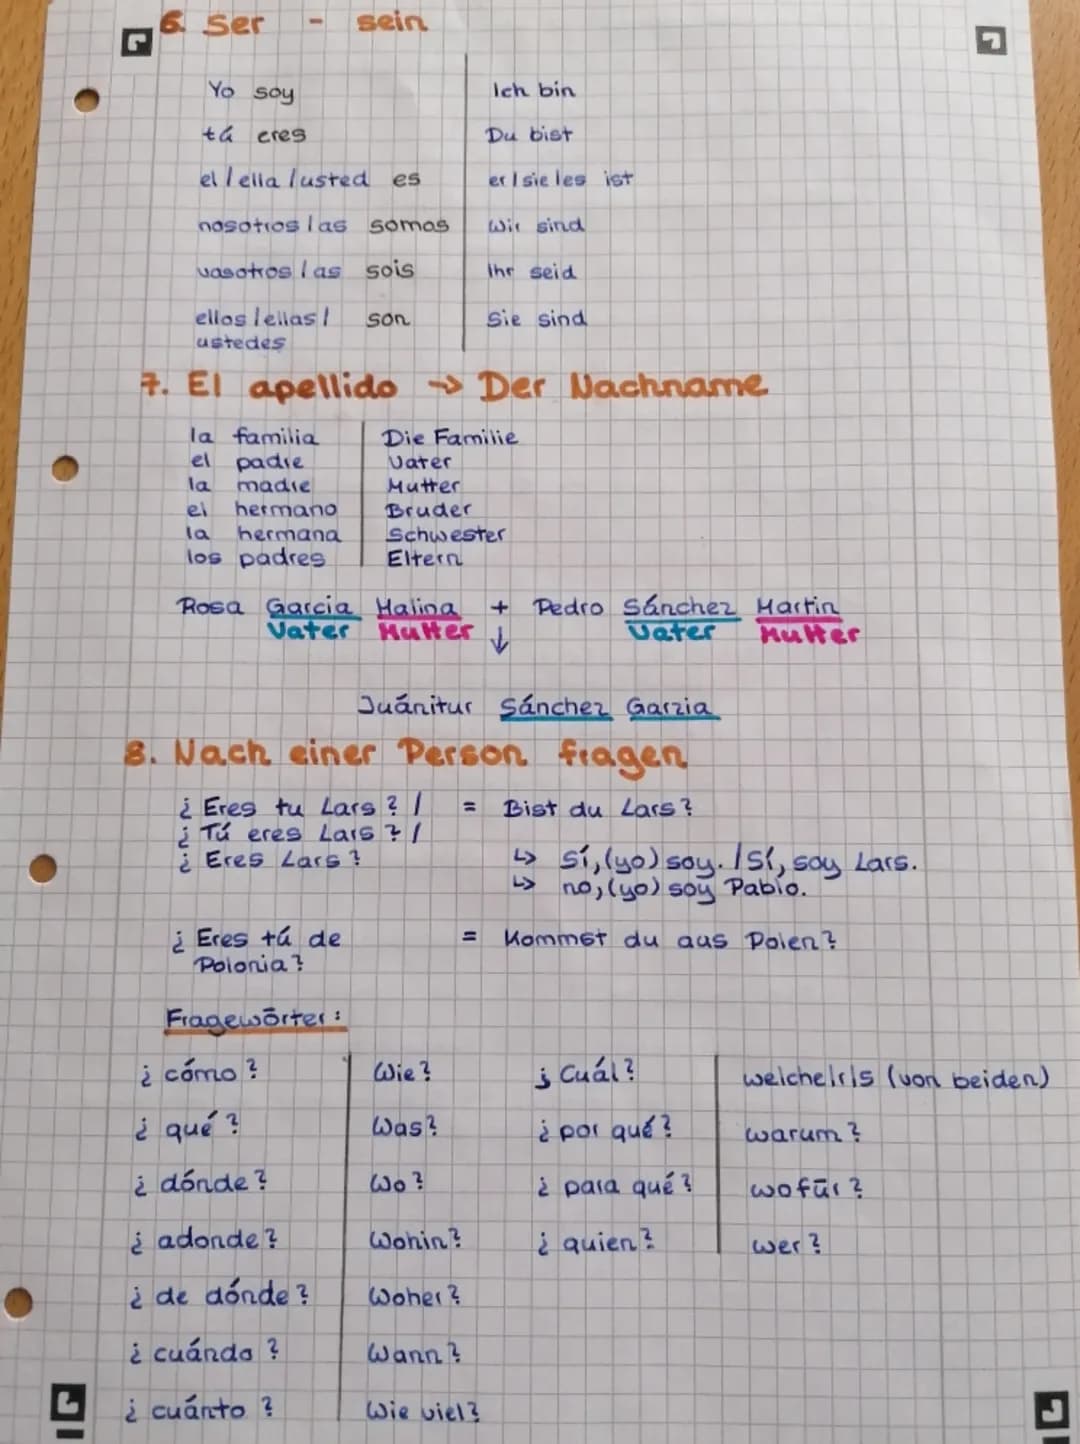 6. Ser - sein
Yo soy Ich bin
tú eres Du bist
el/ella/usted es er/sie/es ist
nosotros/as somos Wir sind
vosotros/as sois Ihr seid
ellos/ellas/ son Sie sind
ustedes
7. El apellido → Der Nachname
la familia Die Familie
el padre Vater
la madre Mutter
el hermano Bruder
la hermana Schwester
los padres Eltern
Rosa Garcia Malina + Pedro Sánchez Martin
Vater Mutter ↓ Vater Mutter
Juánitur Sánchez Garzia
8. Nach einer Person fragen
¿Eres tu Lars?/ = Bist du Lars?
¿Tú eres Lars?/
¿Eres Lars? ↳ Sí,(yo) soy./Sí, soy Lars.
↳ no,(yo) soy Pablo.
¿Eres tú de = Kommst du aus Polen?
Polonia?
Fragewörter:
¿cómo? Wie? ¿Cuál? welche/r/s (von beiden)
¿qué? Was? ¿por qué? warum?
¿dónde? Wo? ¿para qué? wofür?
¿adonde? Wohin? ¿quien? wer?
¿de dónde? Woher?
¿cuándo? Wann?
¿cuánto? Wie viel?